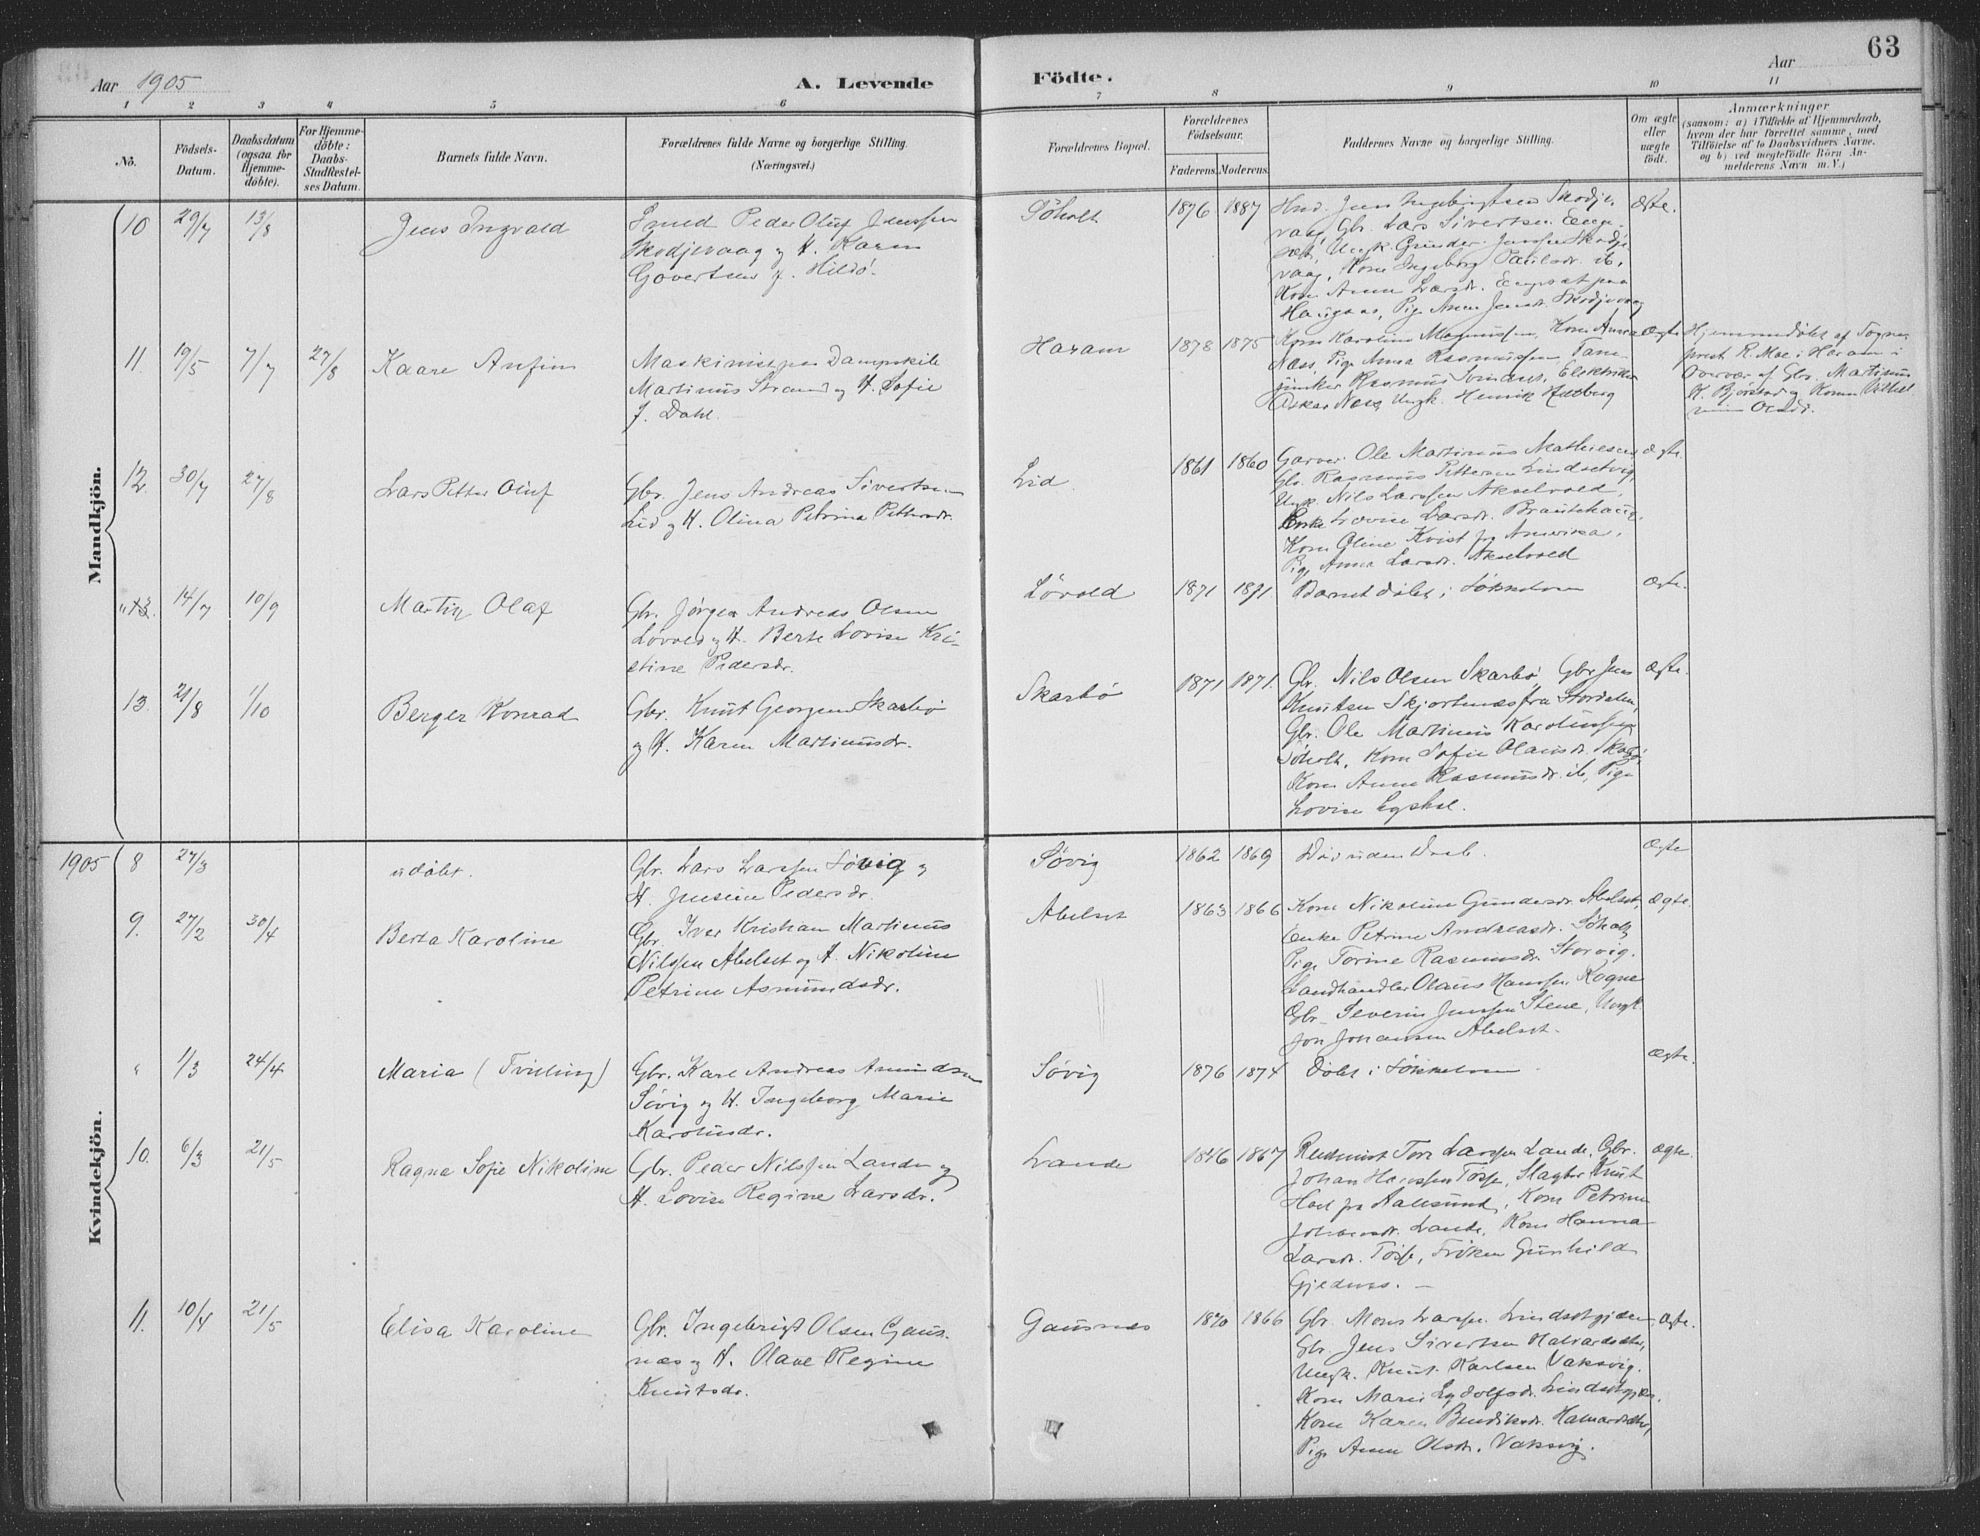 63
Aar 1905
A. Levende
Födte.
Aar
1 2 3 4 5 6 7 8 9 10 11
No.
Födsels-
Datum.
Daabsdatum
(ogsaa for
Hjemme-
döbte).
For Hjemme-
döbte:
Daabs-
Stadfæstel-
ses Datum.
Barnets fulde Navn.
Forældrenes fulde Navne og borgerlige Stilling.
(Næringsvei.)
Forældrenes Bopæl.
Forældrenes
Födselsaar.
Faderens. Moderens.
Faddernes Navne og borgerlige Stilling.
Om ægte
eller
uægte
födt.
Anmærkninger
(saasom: a) i Tilfælde af Hjemmedaab,
hvem der har forrettet samme, med
Tilföielse af to Daabsvidners Navne,
og b) ved uægtefödte Börn An-
melderens Navn m. V.)
Mandkjön.
10 29/7 13/8
Jens Ingvald
Smed Peder Oluf Jenssen
Skodjevaag og H. Karen
Govertsen f. Hildö.
Söholt
1876 1887
Jens Ingebrigtsen Skodje
vaag, Gbr. Lars Sivertsen Enge
sæt, Ungk. Gunder Jenssen Skodje
vaag, Kone Ingeborg Paulsdr. ib.,
Kone Anne Larsdr. Engeset paa
Haugaas, Pige Anne Jensdr. Skodjevaag
Ægte.
11. 19/5 7/7 27/8
Kaare Anfin
Maskinist paa Dampskib
Martinus Strand og H. Sofie
f. Dahl.
Haram
1878 1875
Kone Karoline Magnussen, Kone Anna
Næss, Pige Anna Rasmussen, Fane
junker Rasmus Svindset, Elektriker
Oskar Næss, Ungk. Henrik Hedberg
Ægte
Hjemmedöbt af Sogne
prest R. Moe i Haram i
Overvær af Gbr. Martinus
K. Björstad og Konen Vilhel
mine Olsdr.
12. 30/7 27/8
Lars Petter Oluf
Gbr. Jens Andreas Sivertsen
Lid og H. Olina Petrina Pettersdr.
Lid
1861 1860
Garver Ole Martinus Mathiesen
Gbr. Rasmus Pettersen Lindsetvig,
Ungk. Nils Larssen Akselvold,
Enke Lovise Larsdr. Brautehaug,
Kone Oline Kvist fra Amerika,
Pige Anna Larsdr. Akselvold
Ægte.
" 14/7 10/9
Martin Olaf
Gbr. Jörgen Andreas Olsen
Lövold og H. Berte Lovise Kri-
stine Pedersdr.
Lövold
1871 1871
Barnet döbt i Sökkelven
Ægte.
13. 21/8 1/10
Berger Konrad
Gbr. Knut Georgen Skarbö
og H. Karen Martinusdr.
Skarbö
1871 1871.
Gbr. Nils Olsen Skarbö, Gbr. Jens
Knutsen Skjortenæs fra Stordalen,
Gbr. Ole Martinus Karolussen
Söholt, Kone Sofie Olausdr. Skarbö,
Kone Anne Rasmusdr. ib., Pige
Lovise
Ægte.
1905
Kvindekjön.
8 27/3
udöbt.
Gbr. Lars Larssen Sövig og
H. Jensine Pedersdr.
Sövig
1862 1869
Död uden Daab.
Ægte
9. 27/2 30/4
Berta Karoline
Gbr. Iver Kristian Martinus
Nilssen Abelset og H. Nikoline
Petrine Asmundsdr.
Abelset
1863 1866
Kone Nikoline Gundersdr. Abelset,
Enke Petrine Andreasdr. Söholt,
Pige Torine Rasmusdr. Storvig.
Landhandler Olaus Hanssen Rogne
Gbr. Severin Jenssen Stene, Ungk.
Jon Johansen Abelset.
Ægte
" 1/3 24/4
Maria (Tvilling)
Gbr. Karl Andreas Amundsen
Sövig og H. Ingeborg Marie
Karolusdr.
Sövig
1876 1874
Döbt i Sökkelven
Ægte.
10. 6/3 21/5
Ragna Sofie Nikoline
Gbr. Peder Nilssen Lande og
H. Lovise Regine Larsdr.
Lande
1846 1867
Tore Larssen Lande, Gbr.
Johan Hanssen Tösse, Slagter Knut
Hoel fra Aalesund, Kone Petrine
Johansdr. Lande, Kone Hanna
Larsdr. Tösse, Fröken Gunhild
Gjednes.
Ægte.
11. 10/4 21/5
Elisa Karoline
Gbr. Ingebrigt Olsen Gaus-
næs og H. Olave Regine
Knutsdr.
Gausnæs
1870 1866
Gbr. Mons Larssen Lindsetgjæren
Gbr. Jens Sivertsen Halvardsæter,
Ungk. Knut Karlsen Vaksvig.
Kone Marie Egdolfsdr. Lindsetgjær.
Kone Karen Bendiksdr. Halvardsæter,
Pige Anne Olsdr. Vaksvig.
Ægte.